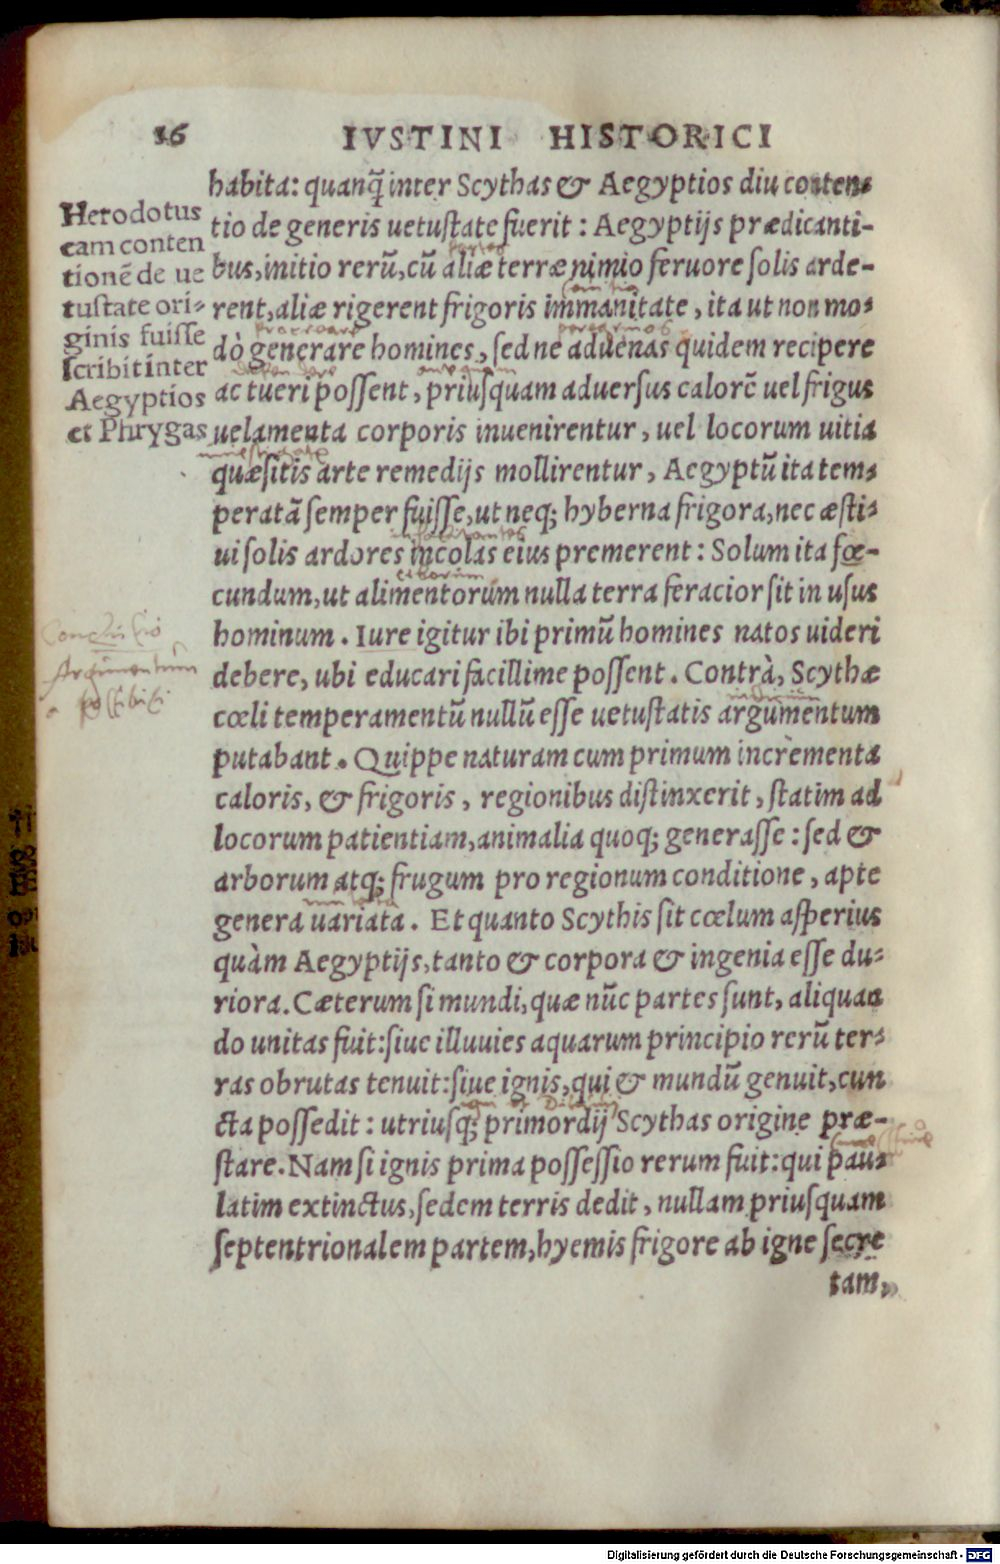 16 IVSTINI HISTORICI
Herodotus
eam conten
tionẽ de ue
tustate ori-
ginis fuisse
scribit inter
Aegyptios
et Phrygas
habita: quanq̃ inter Scythas & Aegyptios diu conten-
tio de generis uetustate fuerit : Aegyptijs prædicanti-
bus, initio rerũ, cũ aliæ terræ nimio feruore solis arde-
rent, aliæ rigerent frigoris immanitate, ita ut non mo-
dò generare homines, sed ne aduenas quidem recipere
ac tueri possent, priusquam aduersus calorẽ uel frigus
uelamenta corporis inuenirentur, uel locorum uitia
quæsitis arte remedijs mollirentur, Aegyptũ ita tem-
peratã semper fuisse, ut neq; hyberna frigora, nec æsti-
ui solis ardores incolas eius premerent: Solum ita fœ-
cundum, ut alimentorum nulla terra feracior sit in usus
hominum. Iure igitur ibi primũ homines natos uideri
debere, ubi educari facillime possent. Contrà, Scythæ
cœli temperamentũ nullũ esse uetustatis argumentum
putabant. Quippe naturam cum primum incrementa
caloris, & frigoris, regionibus distinxerit, statim ad
locorum patientiam, animalia quoq; generasse: sed &
arborum atq; frugum pro regionum conditione, apte
genera uariata. Et quanto Scythis sit cœlum asperius
quàm Aegyptijs, tanto & corpora & ingenia esse du-
riora. Cæterum si mundi, quæ nũc partes sunt, aliquan
do unitas fuit: siue illuuies aquarum principio rerũ ter-
ras obrutas tenuit: siue ignis, qui & mundũ genuit, cun
cta possedit: utriusq; primordij Scythas origine præ-
stare. Nam si ignis prima possessio rerum fuit: qui pau-
latim extinctus, sedem terris dedit, nullam priusquam
septentrionalem partem, hyemis frigore ab igne secre
tam,
Argumentum
partes
procreare
peregrinos
defendere
antequam
inhabitantes
ciborum
indicium
Digitalisierung gefördert durch die Deutsche Forschungsgemeinschaft - DFG